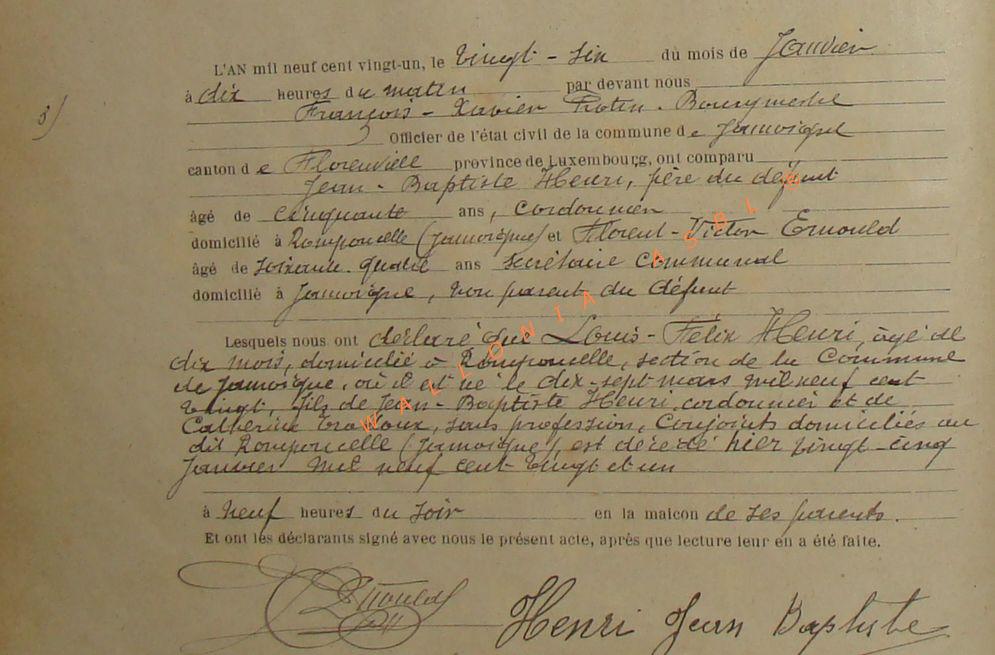 L'AN mil neuf cent vingt-un, le vingt-six du mois de Janvier
à dix heures du matin par devant nous
François-Xavier Bourgmestre
3) Officier de l'état civil de la commune de Jamoigne
canton de Florenville province de Luxembourg, ont comparu
Jean-Baptiste Henri, père du défunt
âgé de cinquante ans, cordonnier
domicilié à Romponcelle (Jamoigne) et Florent-Victor Ernould
âgé de soixante-quatre ans secrétaire communal
domicilié à Jamoigne, non parent du défunt
Lesquels nous ont déclaré que Louis-Félix Henri, âgé de
dix mois, domicilié à Romponcelle, section de la Commune
de Jamoigne, où il est né le dix-sept mars mil neuf cent
vingt, fils de Jean-Baptiste Henri, cordonnier et de
Catherine sans profession, Conjoints domiciliés au
dit Romponcelle (Jamoigne), est décédé hier vingt-cinq
Janvier mil neuf cent vingt et un
à neuf heures du soir en la maison de ses parents.
Et ont les déclarants signé avec nous le présent acte, après que lecture leur en a été faite.
Ernould Henri Jean Baptiste
WALLONIA ASBL